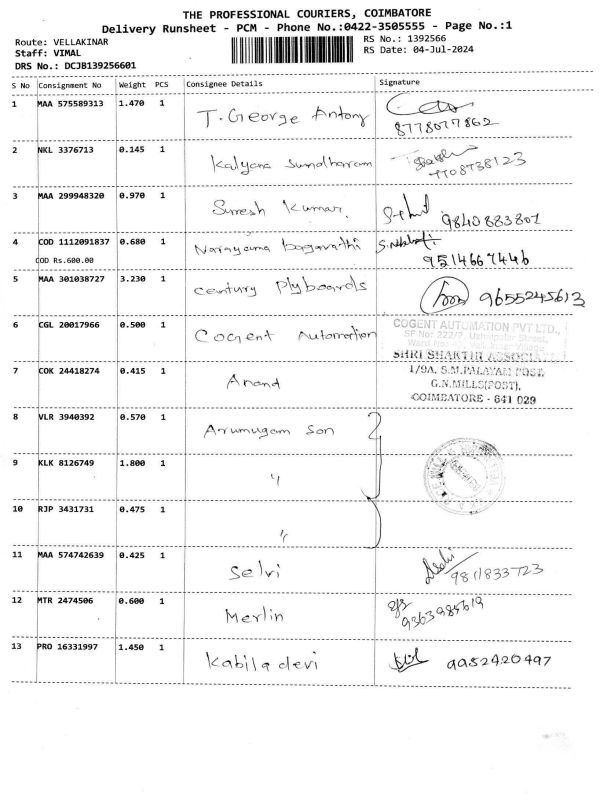 THE PROFESSIONAL COURIERS, COIMBATORE
Delivery Runsheet - PCM - Phone No.:0422-3505555 - Page No.:1
Route: VELLAKINAR RS No.: 1392566
Staff: VIMAL RS Date: 04-Jul-2024
DRS No.: DCJB139256601
S No Consignment No Weight PCS Consignee Details Signature
1 MAA 575589313 1.470 1 T. George Antony
8778077862
2 NKL 3376713 0.145 1 Kalyana Sundharam
7708738123
3 MAA 299948320 0.970 1 Suresh Kumar.
9840883801
4 COD 1112091837 0.680 1 Narayama bagavathi
COD Rs.600.00 9514667446
5 MAA 301038727 3.230 1 century Plyboards 9655245613
6 CGL 20017966 0.500 1 Cogent Automation
COGENT AUTOMATION PVT LTD.,
SF No: 222/2, Ushaipalar Street,
SHRI SHAKTHI ASSOCIATE
7 COK 24418274 0.415 1 Anand
1/9A, S.M.PALAYAM POST,
G.N.MILLS(POST),
COIMBATORE - 641 029
8 VLR 3940392 0.570 1 Arumugam Son
9 KLK 8126749 1.800 1 "
10 RJP 3431731 0.475 1 "
11 MAA 574742639 0.425 1 Selvi
9811833723
12 MTR 2474506 0.600 1 Merlin
9363985619
13 PRO 16331997 1.450 1 Kabiladevi 9952420497